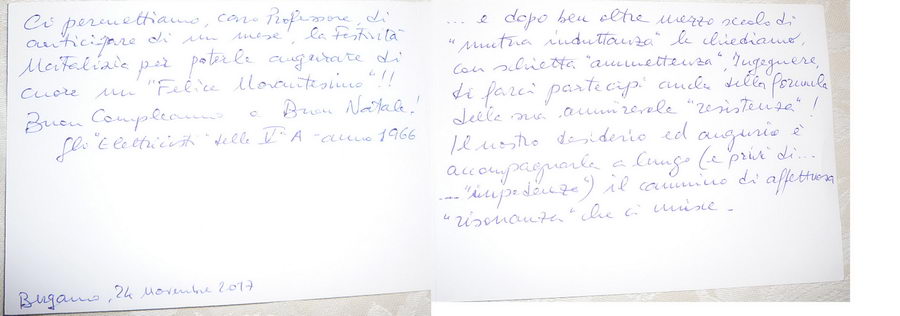 Ci permettiamo, caro Professore, di
anticipare di un mese, la Festività
Natalizia per poterle augurare di
cuore un "Felice Novantesimo"!!
Buon Compleanno e Buon Natale!
Gli "Elettricisti" della V A - anno 1966
Bergamo, 24 novembre 2017
... e dopo ben oltre mezzo secolo di
"mutua induttanza" le chiediamo,
con schietta "ammettenza", Ingegnere,
di farci partecipi anche della formula
della sua ammirevole "resistenza"!
Il nostro desiderio ed augurio è
accompagnarla a lungo (e privi di...
... "impedenza") il cammino di affettuosa
"risonanza" che ci unisce.